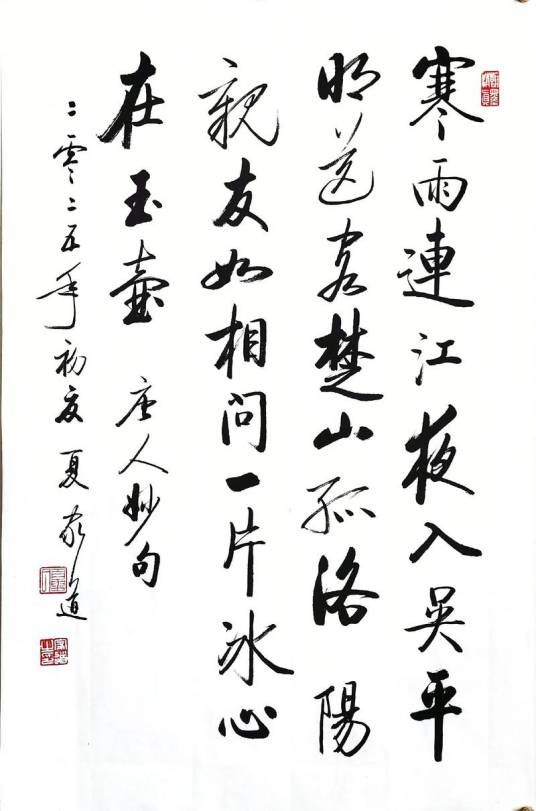 寒雨連江夜入吴平
明送客楚山孤洛陽
親友如相問一片冰心
在玉壺 唐人妙句
二零二五年初夏夏家道